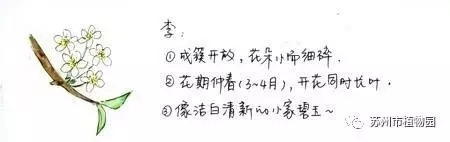 李:
①成簇开放，花朵小而细碎.
②花期仲春(3~4月)，开花同时长叶.
③像洁白清新的小家碧玉~
苏州市植物园